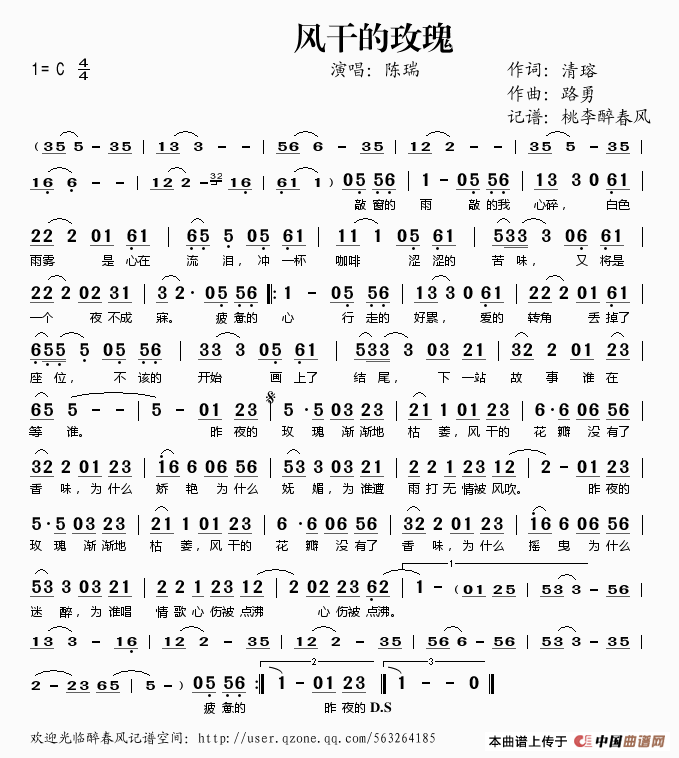 风干的玫瑰
1= C 4/4
演唱：陈瑞
作词：清瑢
作曲：路勇
记谱：桃李醉春风
（35 5 - 35 | 13 3 - - | 56 6 - 35 | 12 2 - - | 53 3 - 35 |
16 6 - - | 12 2 - 32 16 | 61 1 ）05 56 | 1 - 05 56 | 13 3 0 61 |
敲窗的 雨 敲的我 心碎， 白色
22 2 01 61 | 65 5 05 61 | 11 1 05 61 | 533 3 06 61 |
雨雾 是 心在 流 泪，冲 一杯 咖啡 涩涩的 苦味， 又 将是
22 2 02 31 | 32· 05 56 ‖: 1 - 05 56 | 13 3 0 61 | 22 2 01 61 |
一个 夜 不成 寐。 疲惫的 心 行 走的 好累， 爱的 转角 丢 掉了
655 5 05 56 | 33 3 05 61 | 533 3 03 21 | 32 2 01 23 |
座位， 不 该的 开始 画 上了 结尾， 下 一站 故 事 谁在
65 5 - - | 5 - 01 23 | 5 · 5 03 23 | 21 1 01 23 | 6 · 6 06 56 |
等 谁。 昨 夜的 玫 瑰 渐 渐地 枯 萎，风 干的 花 瓣 没 有了
32 2 01 23 | 16 6 06 56 | 53 3 03 21 | 22 12 23 12 | 2 - 01 23 |
香 味，为 什么 娇 艳 为 什么 妩 媚，为 谁遭 雨 打 无 情被 风吹。 昨 夜的
5 · 5 03 23 | 21 1 01 23 | 6 · 6 06 56 | 32 2 01 23 | 16 6 06 56 |
玫 瑰 渐 渐地 枯 萎，风 干的 花 瓣 没 有了 香 味，为 什么 摇 曳 为 什么
53 3 03 21 | 22 1 23 12 | 2 02 23 62 | 1 - （01 25 | 53 3 - 56 |
1
迷 醉，为 谁唱 情 歌 心 伤被 点沸 心 伤被 点沸。
13 3 - 16 | 12 2 - 35 | 12 2 - 35 | 56 6 - 56 | 53 3 - 35 |
2 - 23 65 | 5 - ）05 56 :‖ 1 - 01 23 | 1 - - 0 ‖
2 3
疲 惫的 昨 夜的 D.S
欢迎光临醉春风记谱空间：http://user.qzone.qq.com/563264185
本曲谱上传于 中国曲谱网